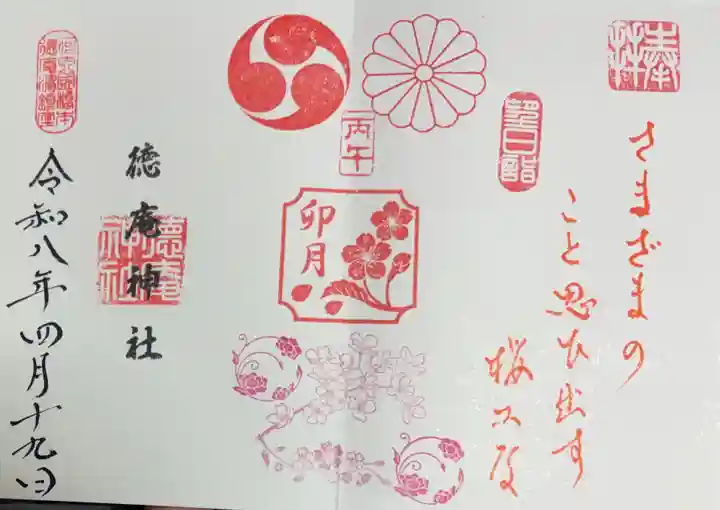 奉拝
さまざまの
こと思ひ出す
桜の夜
朔日詣
丙午
卯月
徳庵神社
徳庵神社
令和八年四月十九日